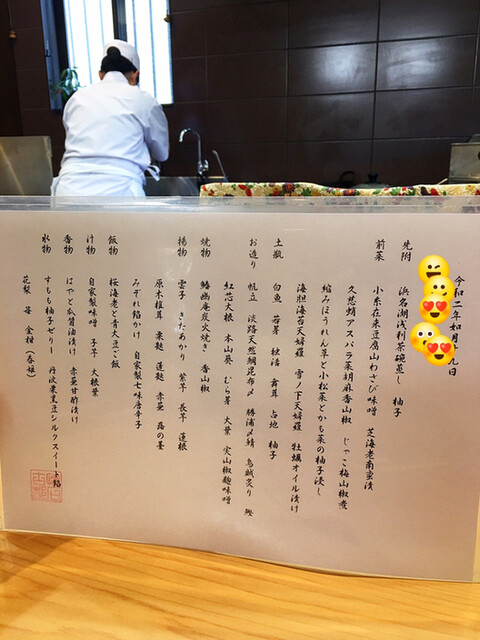 令和二年如月 九日
先附 浜名湖浅利茶碗蒸し 柚子
前菜 小糸在来豆腐山わさび味噌 芝海老南蛮漬
久慈蛸アスパラ菜胡麻香山椒 じゃこ梅山椒煮
縮みほうれん草と小松菜とかも菜の柚子浸し
海胆海苔天婦羅 雪ノ下天婦羅 牡蠣オイル漬け
土瓶 白魚 若芽 独活 舞茸 占地 柚子
お造り 帆立 淡路天然鯛昆布〆 勝浦〆鯖 烏賊炙り 鰹
紅芯大根 本山葵 むら芽 大葉 実山椒麹味噌
焼物 鰆幽庵炭火焼き 香山椒
揚物 雲子 きたあかり 紫芋 長芋 蓮根
原木椎茸 粟麺 蓬麺 赤蒟 蕗の薹
みぞれ餡かけ 自家製七味唐辛子
飯物 桜海老と青大豆ご飯
汁物 自家製味噌 子芋 大根葉
香物 はやと瓜醤油漬け 赤蕪甘酢漬け
水物 すもも柚子ゼリー 丹波栗黒豆シルクスイート餡
花梨 苺 金柑(春姫)